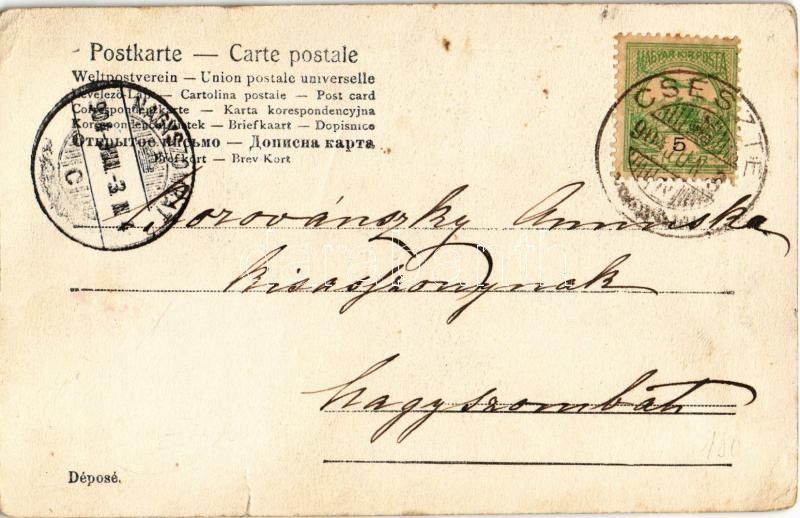 Postkarte — Carte postale
Weltpostverein — Union postale universelle
Levelező-Lap — Cartolina postale — Post card
Correspondenzkarte — Karta korespondencyjna
Korespondenční lístek — Briefkaart — Dopisnice
Открытое письмо — Дописна карта
Brefkort — Brev Kort
MAGYAR KIR. POSTA
5
CSESZTE
C
Morovánszky Annuska
kisasszonynak
Nagyszombat
180
Déposé.